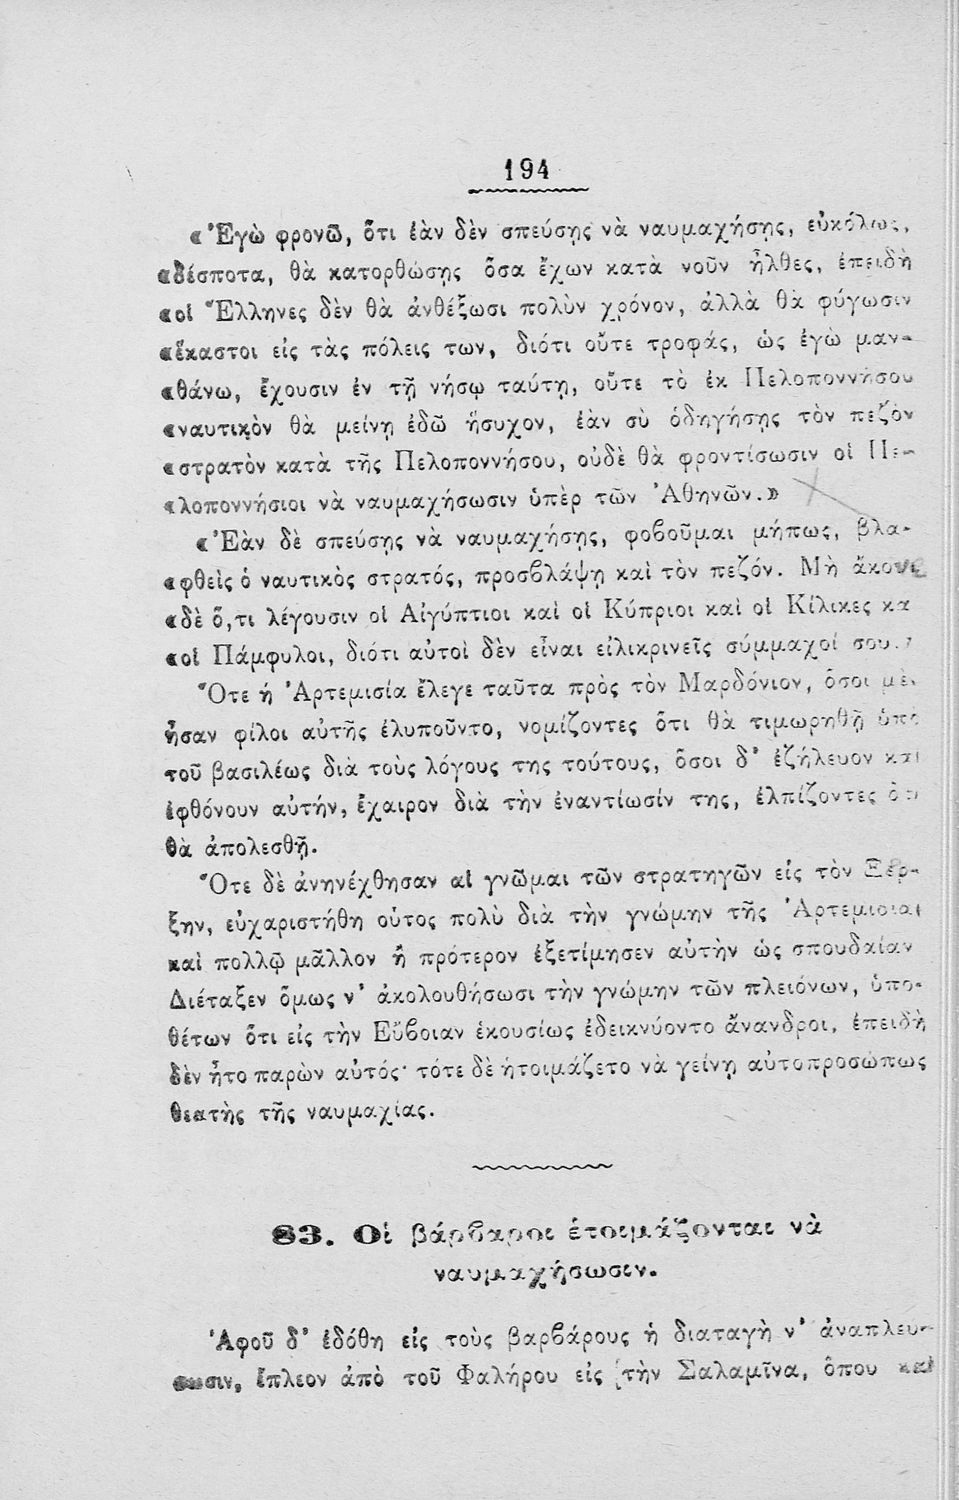 194
«Ἐγὼ φρονῶ, ὅτι ἐὰν δὲν σπεύσῃς νὰ ναυμαχήσῃς, εὐκόλως,
«δέσποτα, θὰ κατορθώσῃς ὅσα ἔχων κατὰ νοῦν ἦλθες, ἐπειδὴ
«οἱ Ἕλληνες δὲν θὰ ἀνθέξωσι πολὺν χρόνον, ἀλλὰ θὰ φύγωσιν
«ἕκαστοι εἰς τὰς πόλεις των, διότι οὔτε τροφάς, ὡς ἐγὼ μαν-
«θάνω, ἔχουσιν ἐν τῇ νήσῳ ταύτῃ, οὔτε τὸ ἐκ Πελοποννήσου
«ναυτικὸν θὰ μείνῃ ἐδῶ ἥσυχον, ἐὰν σὺ ὁδηγήσῃς τὸν πεζὸν
«στρατὸν κατὰ τῆς Πελοποννήσου, οὐδὲ θὰ φροντίσωσιν οἱ Πε-
«λοποννήσιοι νὰ ναυμαχήσωσιν ὑπὲρ τῶν Ἀθηνῶν.»
«Ἐὰν δὲ σπεύσῃς νὰ ναυμαχήσῃς, φοβοῦμαι μήπως, βλα-
«φθεὶς ὁ ναυτικὸς στρατός, προσβλάψῃ καὶ τὸν πεζόν. Μὴ ἄκουε
«δὲ ὅ,τι λέγουσιν οἱ Αἰγύπτιοι καὶ οἱ Κύπριοι καὶ οἱ Κίλικες κα
«οἱ Πάμφυλοι, διότι αὐτοὶ δὲν εἶναι εἰλικρινεῖς σύμμαχοί σου.»
Ὅτε ἡ Ἀρτεμισία ἔλεγε ταῦτα πρὸς τὸν Μαρδόνιον, ὅσοι μὲν
ἦσαν φίλοι αὐτῆς ἐλυποῦντο, νομίζοντες ὅτι θὰ τιμωρηθῇ ὑπὸ
τοῦ βασιλέως διὰ τοὺς λόγους της τούτους, ὅσοι δ' ἐζήλευον καὶ
ἐφθόνουν αὐτήν, ἔχαιρον διὰ τὴν ἐναντίωσίν της, ἐλπίζοντες ὅτι
θὰ ἀπολεσθῇ.
Ὅτε δὲ ἀνηνέχθησαν αἱ γνῶμαι τῶν στρατηγῶν εἰς τὸν Ξέρ-
ξην, εὐχαριστήθη οὗτος πολὺ διὰ τὴν γνώμην τῆς Ἀρτεμισίας
καὶ πολλῷ μᾶλλον ἢ πρότερον ἐξετίμησεν αὐτὴν ὡς σπουδαίαν
Διέταξεν ὅμως ν' ἀκολουθήσωσι τὴν γνώμην τῶν πλειόνων, ὑπο-
θέτων ὅτι εἰς τὴν Εὔβοιαν ἑκουσίως ἐδεικνύοντο ἄνανδροι, ἐπειδὴ
δὲν ἦτο παρὼν αὐτός· τότε δὲ ἡτοιμάζετο νὰ γείνῃ αὐτοπροσώπως
θεατὴς τῆς ναυμαχίας.
83. Οἱ βάρβαροι ἑτοιμάζονται νὰ
ναυμαχήσωσιν.
Ἀφοῦ δ' ἐδόθη εἰς τοὺς βαρβάρους ἡ διαταγὴ ν' ἀναπλεύ-
σωσιν, ἔπλεον ἀπὸ τοῦ Φαλήρου εἰς τὴν Σαλαμῖνα, ὅπου καὶ